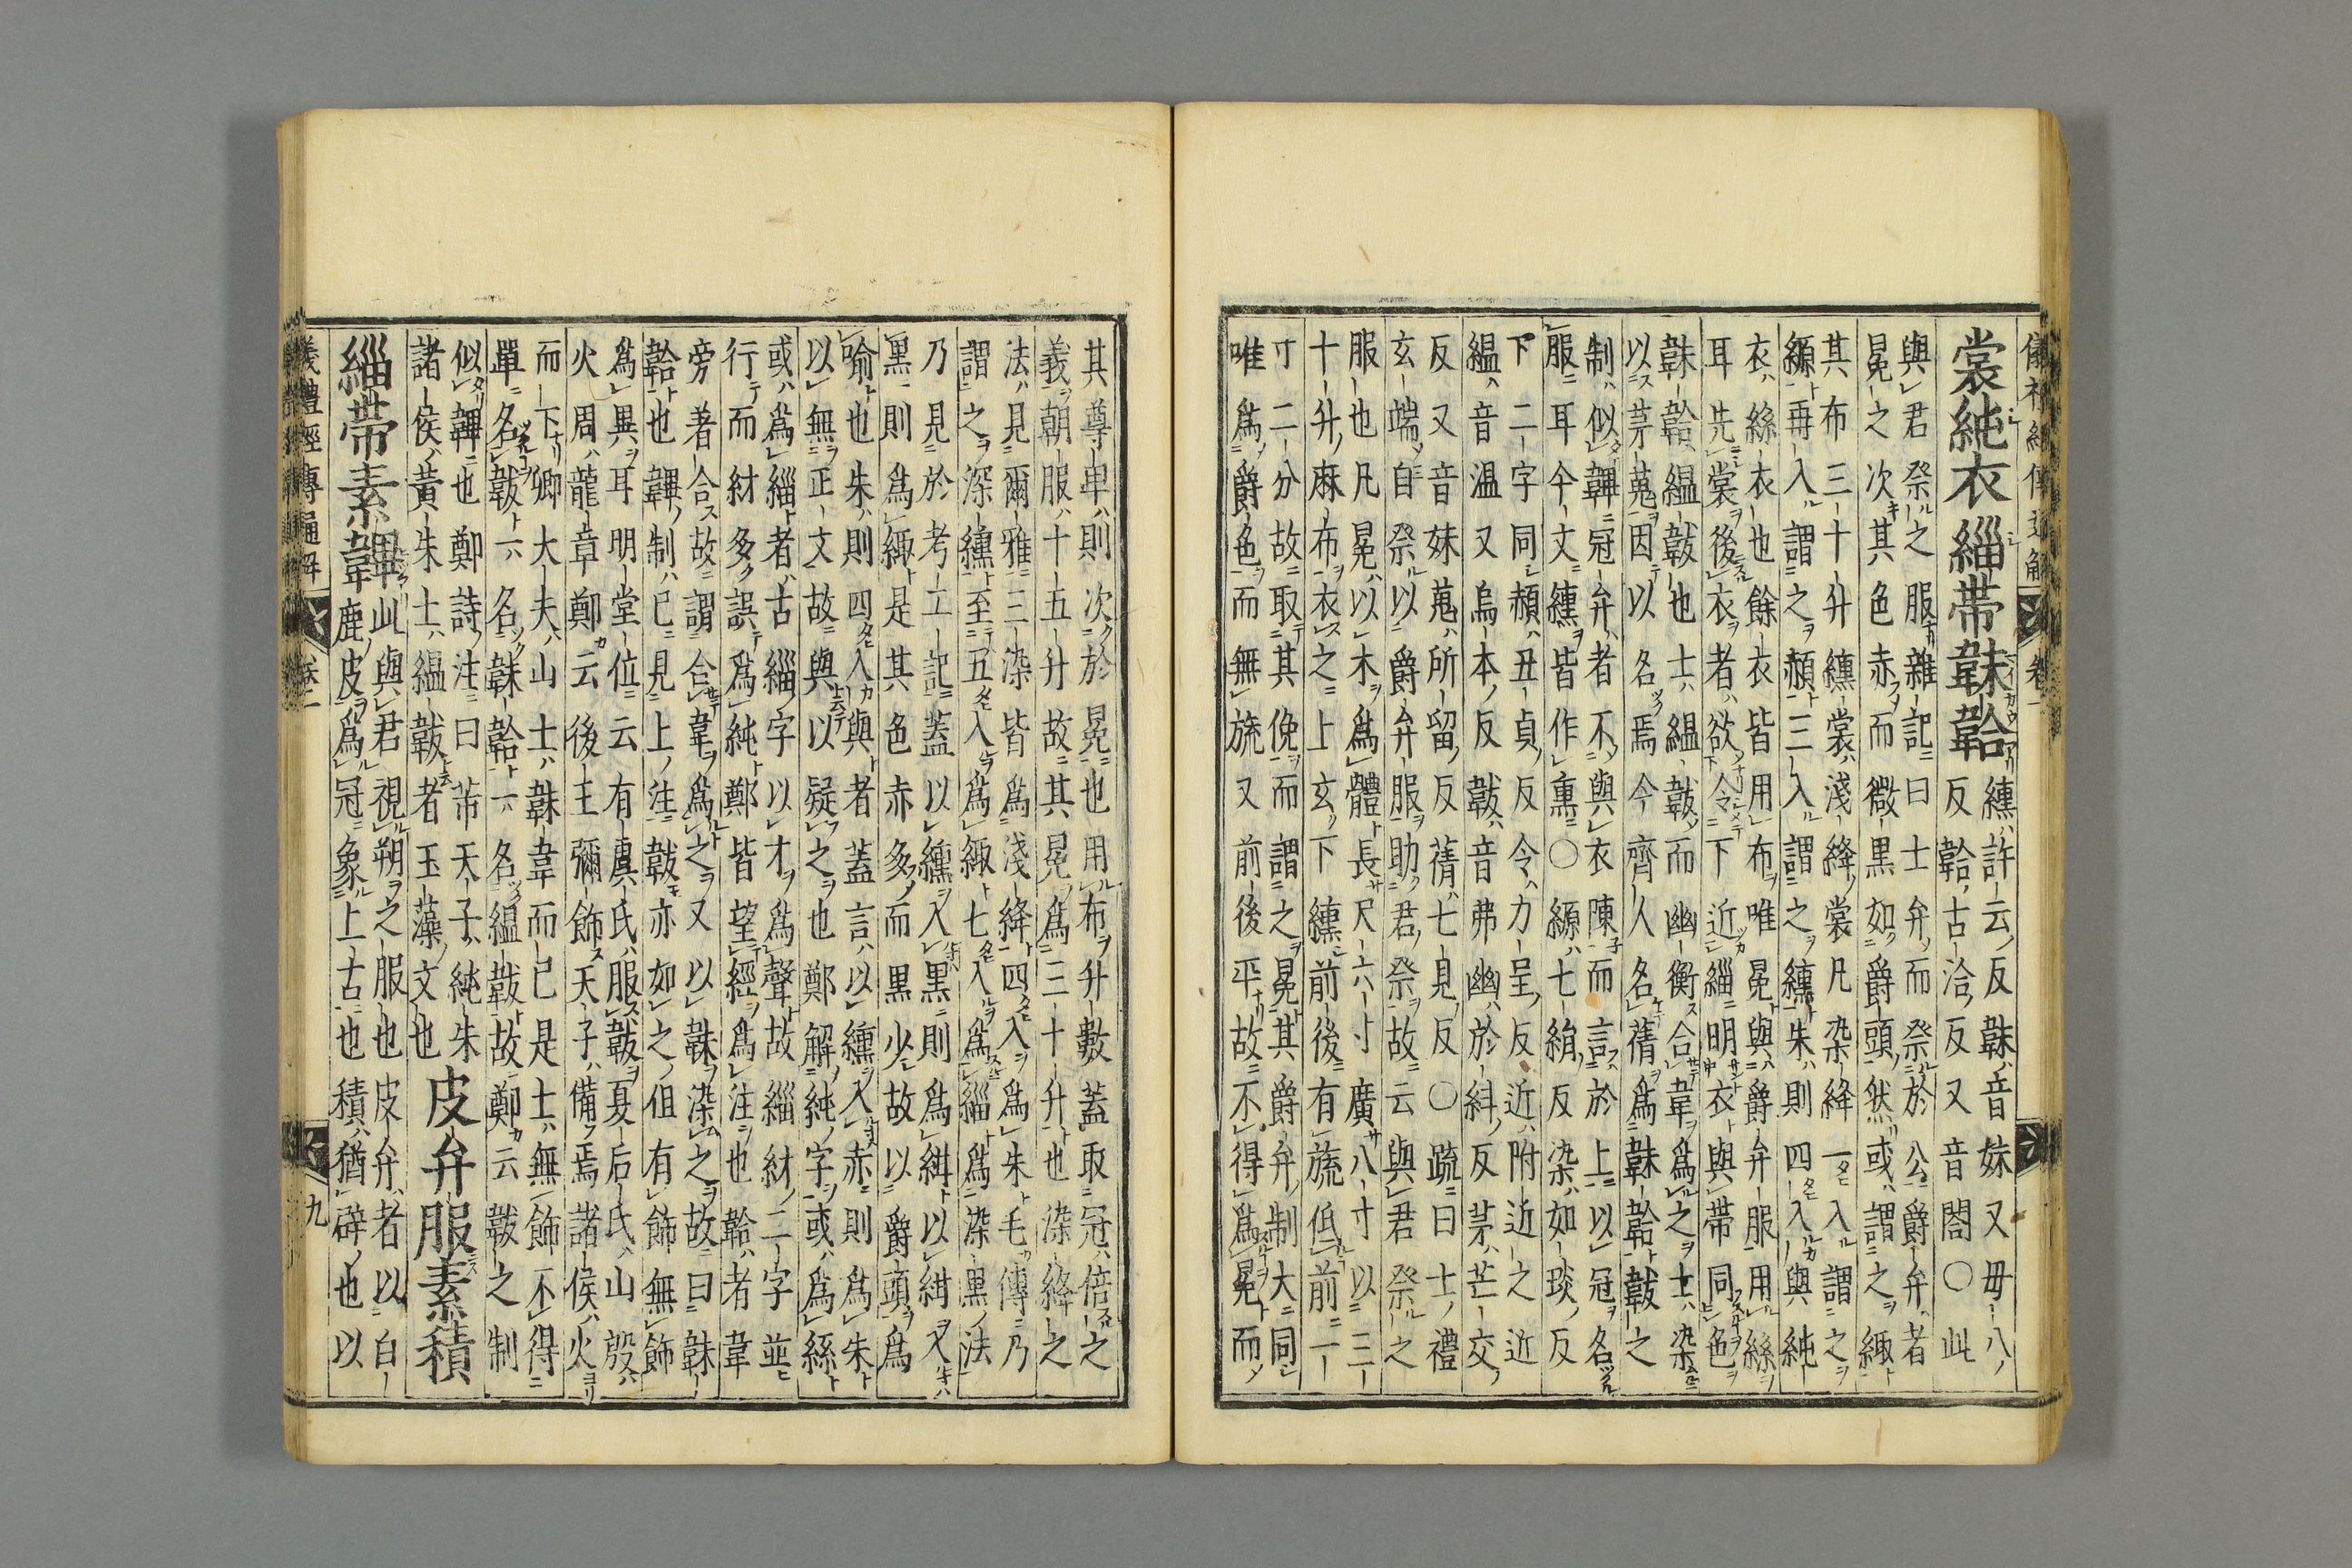 儀禮經傳通解 卷一
裳純衣緇帶韎韐
纁許云反韎音妹又毋八
反韐古洽反又音閤〇此
與君祭之服雜記曰士弁而祭於公爵弁者
冕之次其色赤而微黒如爵頭然或謂之緅
其布三十升纁裳淺絳裳凡染絳一入謂之
縓再入謂之赬三入謂之纁朱則四入與純
衣絲衣也餘衣皆用布唯冕與爵弁服用絲
耳先裳後衣者欲令下近緇明衣與帶同色
韎韐緼韍也士緼韍而幽衡合韋爲之士染
以茅蒐因以名焉今齊人名蒨爲韎韐韍之
制似韠冠弁者不與衣陳而言於上以冠名
服耳今文纁皆作熏〇縓七絹反染如琰反
下二字同赬丑貞反令力呈反近附近之近
緼音温又烏本反韍音弗幽於糾反茅芒交
反又音妹蒐所留反蒨七見反〇疏曰士禮
玄端自祭以爵弁服助君祭故云與君祭之
服也凡冕以木爲體長尺六寸廣八寸以三
十升麻布衣之上玄下纁前後有旒低前一
寸二分故取其俛而謂之冕其爵弁制大同
唯爲爵色而無旒又前後平故不得爲冕而
其尊卑則次於冕也用布升數蓋取冠倍之
義朝服十五升故其冕爲三十升也染絳之
法見爾雅三染皆爲淺絳四入爲朱毛傳乃
謂之深纁至五入爲緅七入爲緇爲染黒法
乃見於考工記蓋以纁入黒則爲紺以紺入
黒則爲緅是其色赤多而黒少故以爵頭爲
喻也朱則四入與者蓋言以纁入赤則爲朱
以無正文故與以疑之也鄭解純字或爲絲
或爲緇者古緇字以才爲聲故緇䊷二字並
行而䊷多誤爲純鄭皆望經爲注也韐者韋
旁著合故謂合韋爲之又以韎染之故曰韎
韐也韠制已見上注韍亦如之但有飾無飾
爲異耳明堂位云有虞氏服韍夏后氏山殷
火周龍章鄭云後王彌飾天子備焉諸侯火
而下卿大夫山士韎韋而已是士無飾不得
單名韍一名韎韐一名緼韍故鄭云韍之制
似韠也鄭詩注曰芾天子純朱
諸侯黃朱士緼韍者玉藻文也
皮弁服素積
緇帶素韠
此與君視朔之服也皮弁者以白
鹿皮爲冠象上古也積猶辟也以
儀禮經傳通解 卷一 九